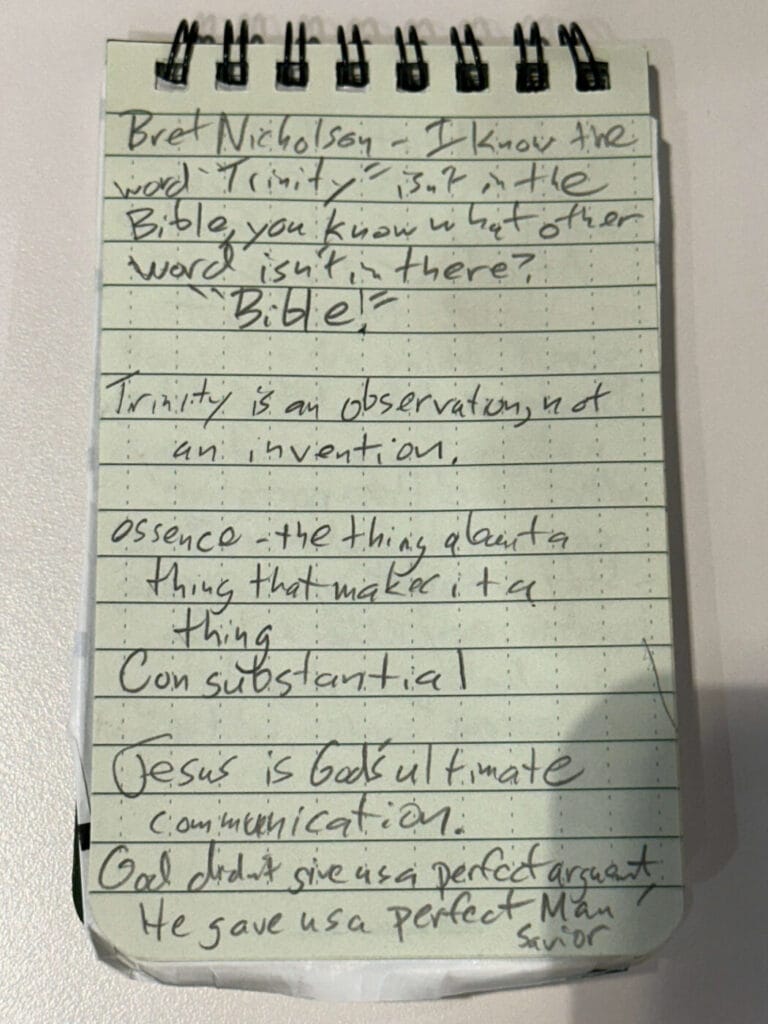 Bret Nicholson - I know the
word "Trinity" isn't in the
Bible, you know what other
word isn't in there?
"Bible!"
Trinity is an observation, not
an invention.
essence - the thing about a
thing that makes it a
thing
Consubstantial
Jesus is God's ultimate
communication.
God didn't give us a perfect arguent,
He gave us a perfect Man
Savior